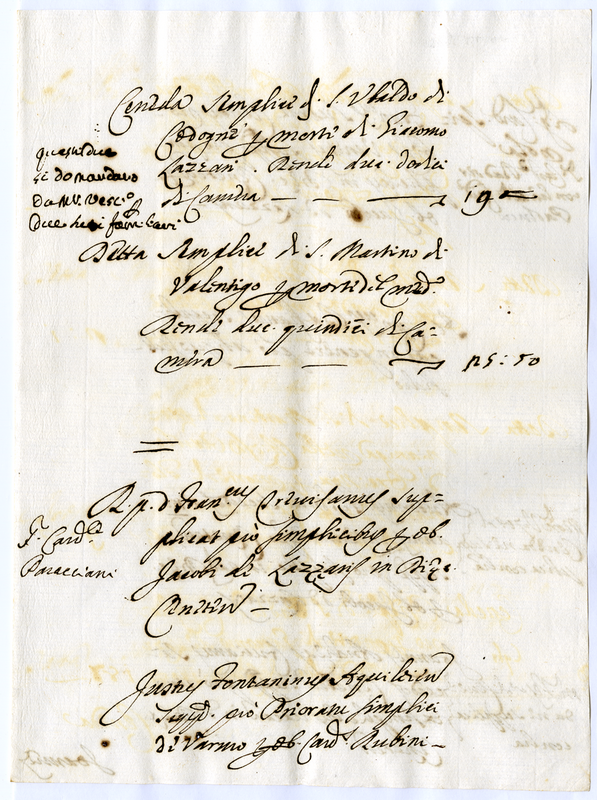 Ceneda Semplice di S. Ubaldo di
Codognè per morte di Giacomo
Lazzari. Rende duc. dodici
di Camera — — — 19 =
queste due
si domandano
Da M. Vesc.
due
Detta Semplice di S. Martino di
Valentigo per morte del med.o
Rende duc. quindici di Ca-
mera — — — 25: 50
=
R. p. d. Fran.cus Trevisanus sup-
plicat pro simplicibus per ob.
Jacobi de Lazzaris in
Ceneten —
Card.le
Paracciani
Justus Fontaninus Aquileien
Supp.t pro Prioratu simplici
di Varmo per ob. Card. Rubini —